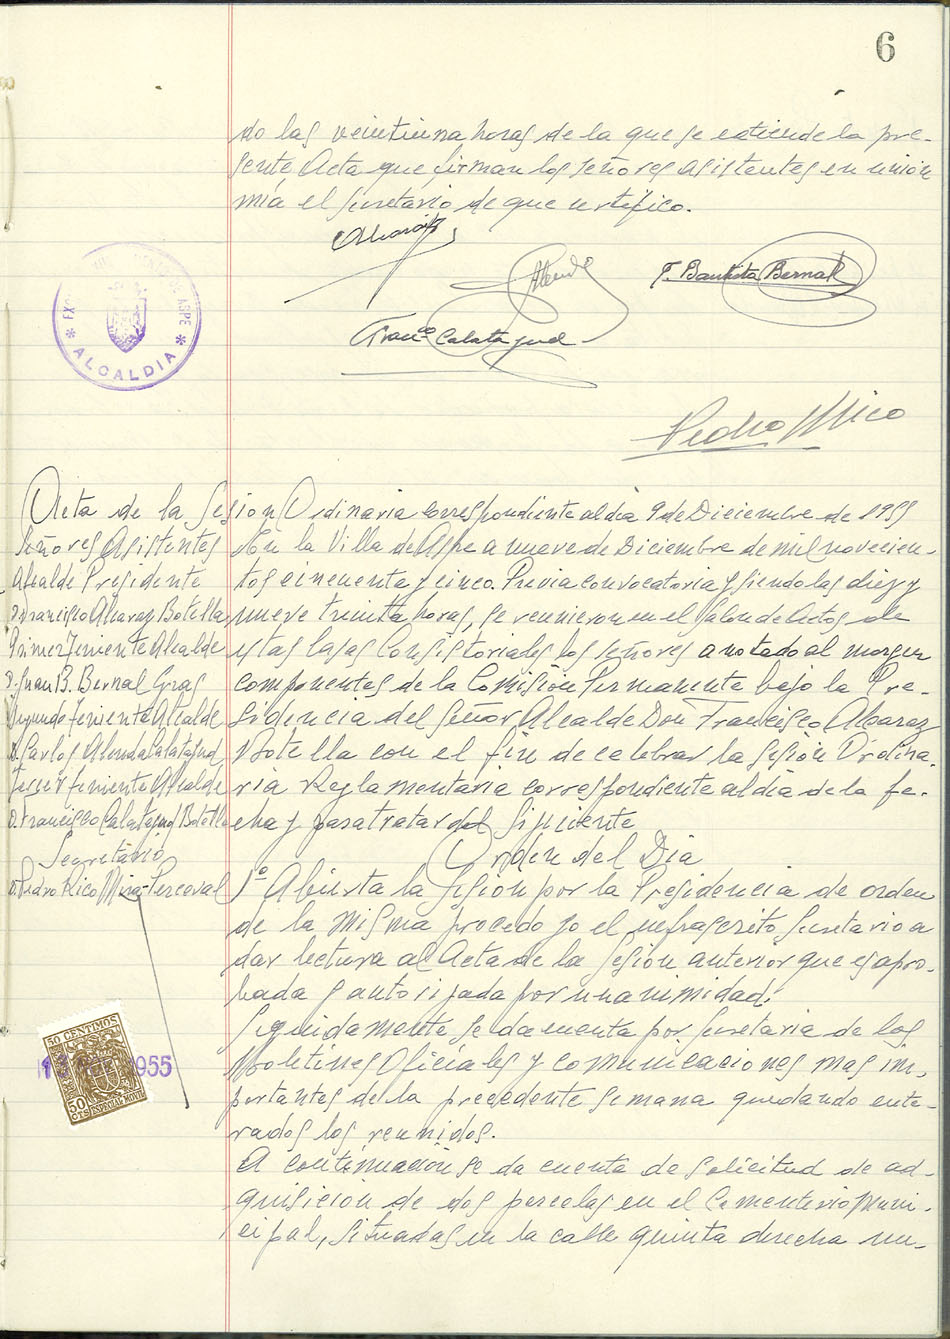 6
do las veintiuna horas de la que se extiende la pre-
sente Acta que firman los señores asistentes en unión
mía el Secretario de que certifico.
Alcaraz
Alenda
J. Bautista Bernal
Franco Calatayud
ASPE
* ALCALDIA *
Pedro Rico
Acta de la Sesión Ordinaria correspondiente al día 9 de Diciembre de 1955
Señores Asistentes
Alcalde Presidente
D. Francisco Alcaraz Botella
Primer Teniente Alcalde
D. Juan B. Bernal Gras
Segundo Teniente Alcalde
D. Carlos Alenda Calatayud
Tercer Teniente Alcalde
D. Francisco Calatayud Botella
Secretario
D. Pedro Rico Mira-Perceval
50 CENTIMOS
50
13 1955
En la Villa de Aspe a nueve de Diciembre de mil novecien-
tos cincuenta y cinco. Previa convocatoria y siendo las diez y
nueve treinta horas, se reunieron en el Salon de Actos de
estas Casas Consistoriales los señores anotado al margen
componentes de la Comisión Permanente bajo la Pre-
sidencia del Señor Alcalde Don Francisco Alcaraz
Botella con el fin de celebrar la sesión Ordina-
ria Reglamentaria correspondiente al día de la fe-
cha y para tratar del Siguiente
Orden del Dia
1º Abierta la sesión por la Presidencia de orden
de la misma procedo yo el infrascrito Secretario a
dar lectura al Acta de la sesión anterior que es apro-
bada y autorizada por unanimidad.
Seguidamente se da cuenta por Secretaria de los
Boletines Oficiales y comunicaciones mas im-
portantes de la precedente semana quedando ente-
rados los reunidos.
A continuación se da cuenta de solicitud de ad-
quisición de dos parcelas en el Cementerio Muni-
cipal, situadas en la calle quinta derecha nu-